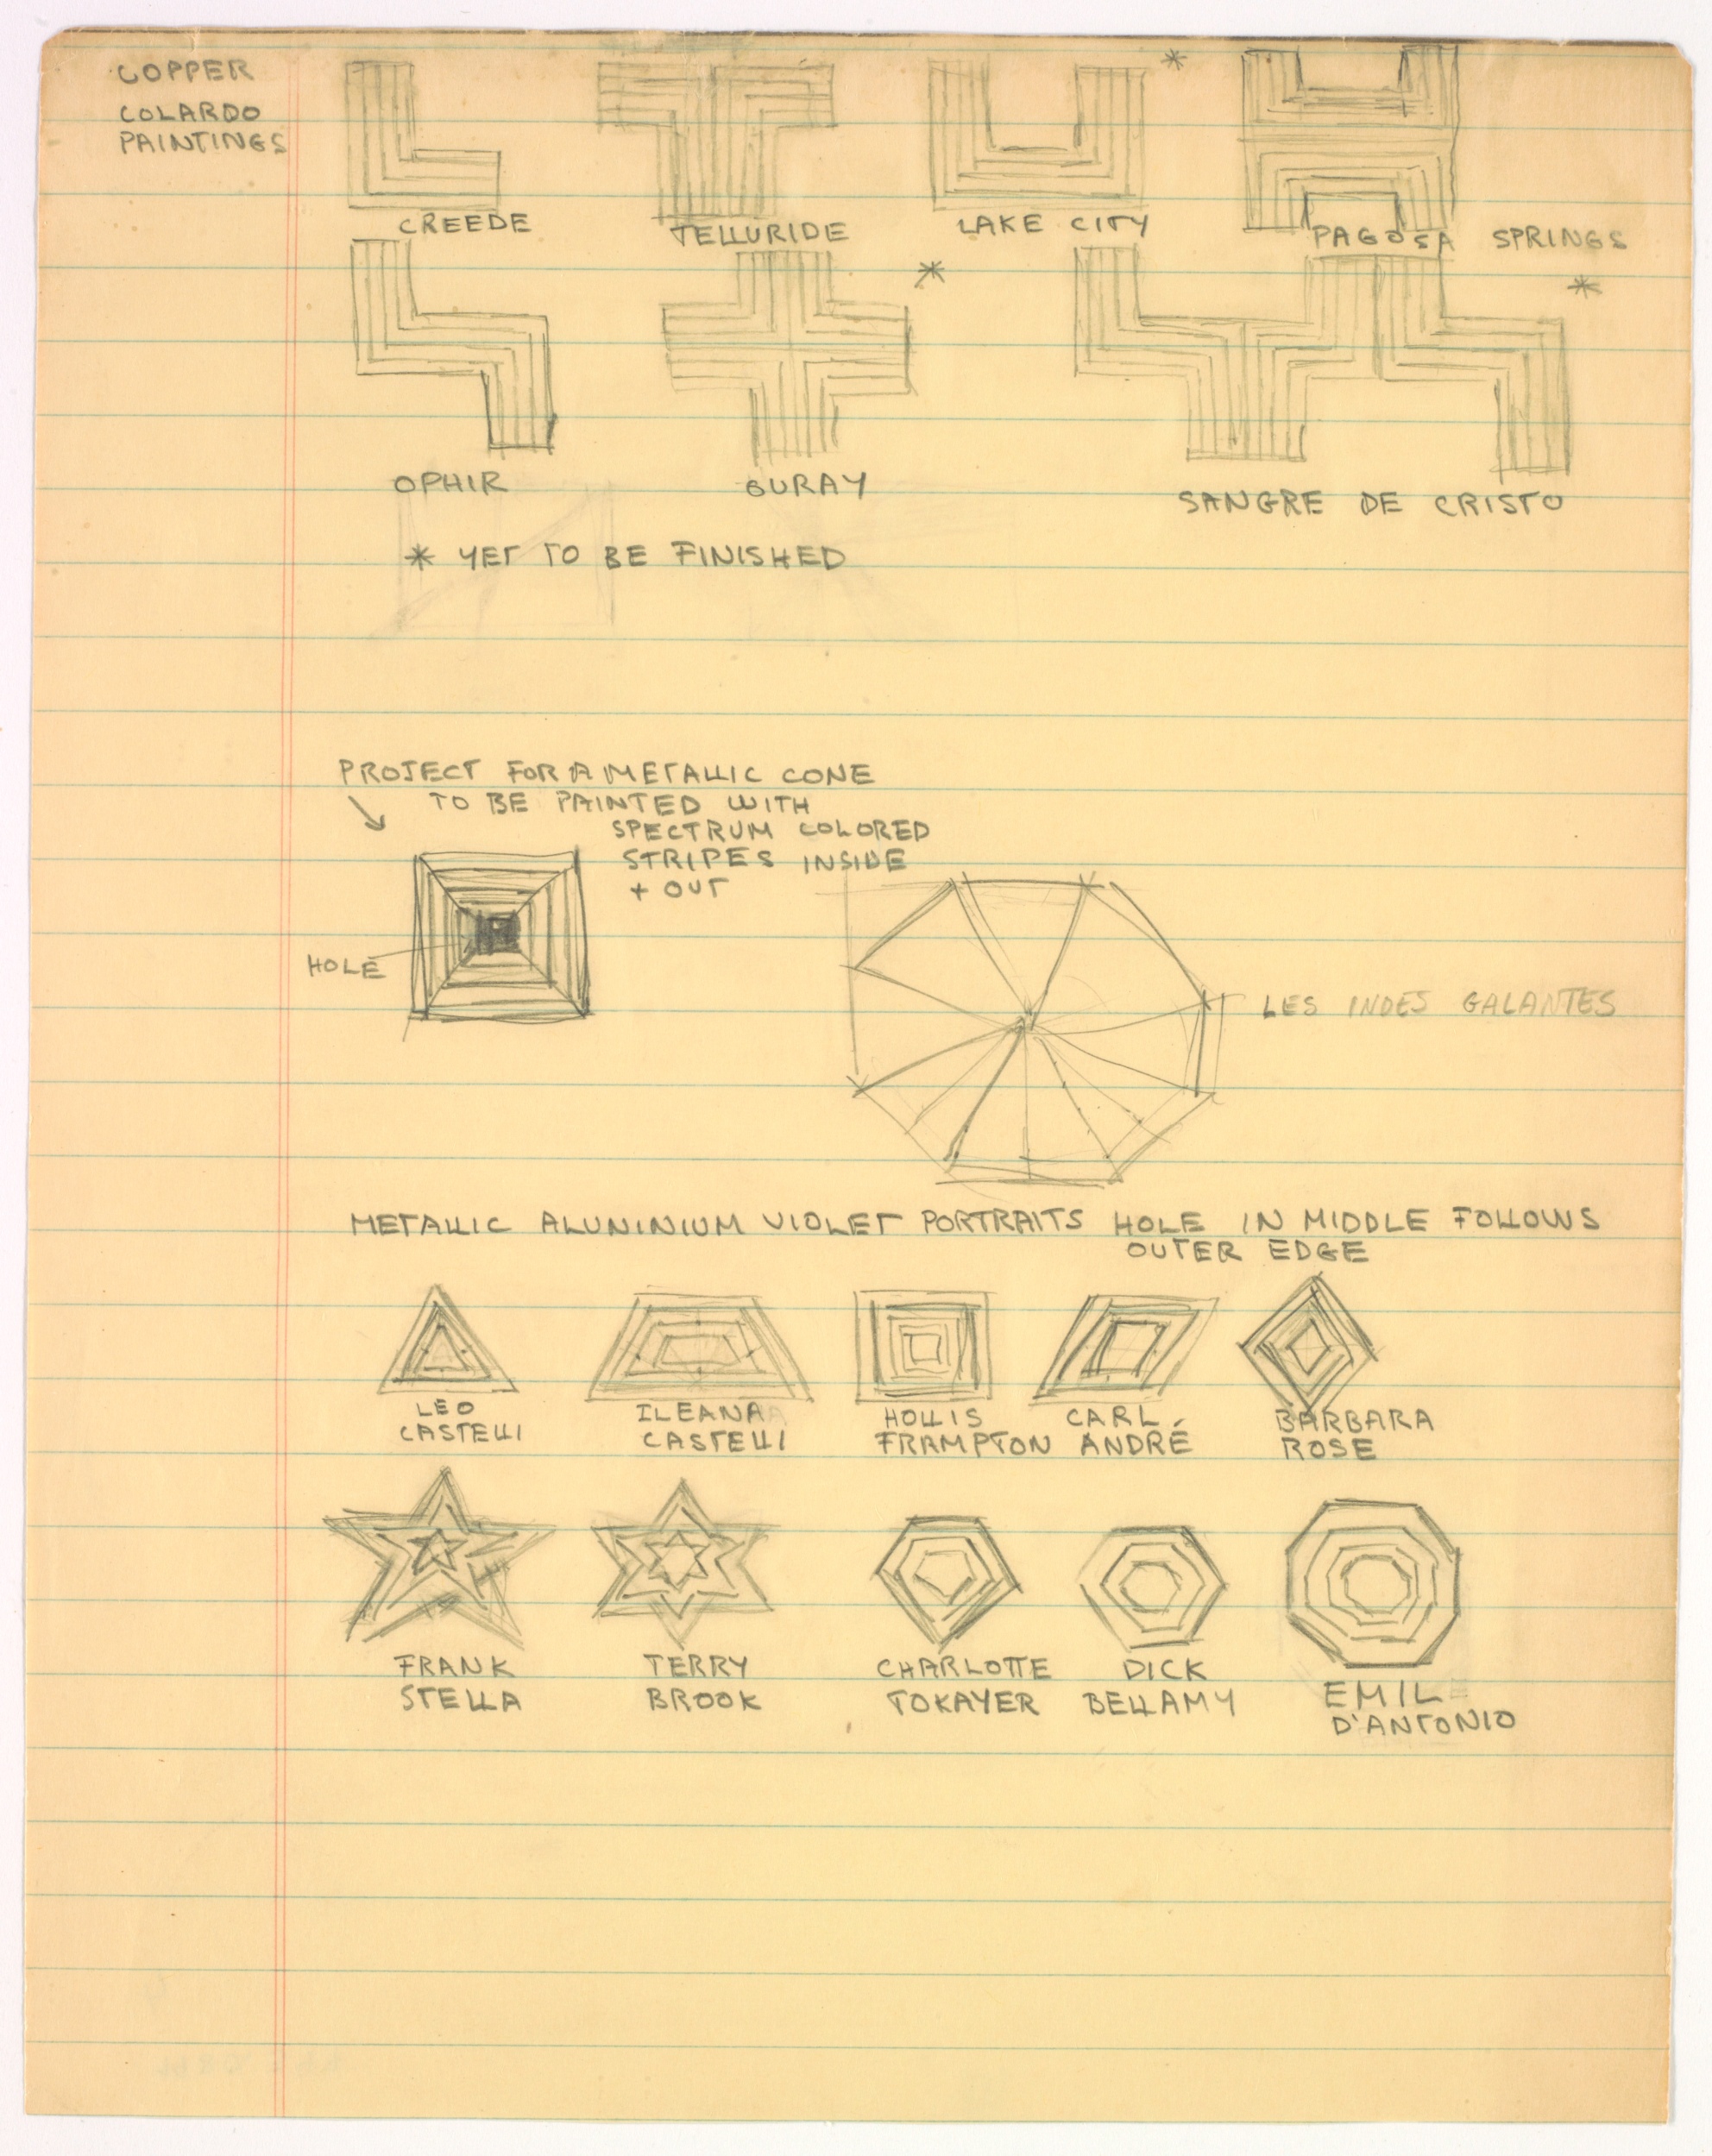 COPPER
COLARDO
PAINTINGS
*
CREEDE TELLURIDE LAKE CITY PAGOSA SPRINGS
* *
OPHIR OURAY SANGRE DE CRISTO
* YET TO BE FINISHED
PROJECT FOR A METALLIC CONE
TO BE PAINTED WITH
SPECTRUM COLORED
STRIPES INSIDE
+ OUT
HOLE
LES INDES GALANTES
METALLIC ALUNINIUM VIOLET PORTRAITS HOLE IN MIDDLE FOLLOWS
OUTER EDGE
LEO
CASTELLI
ILEANA
CASTELLI
HOLLIS
FRAMPTON
CARL
ANDRÉ
BARBARA
ROSE
FRANK
STELLA
TERRY
BROOK
CHARLOTTE
TOKAYER
DICK
BELLAMY
EMIL
D'ANTONIO